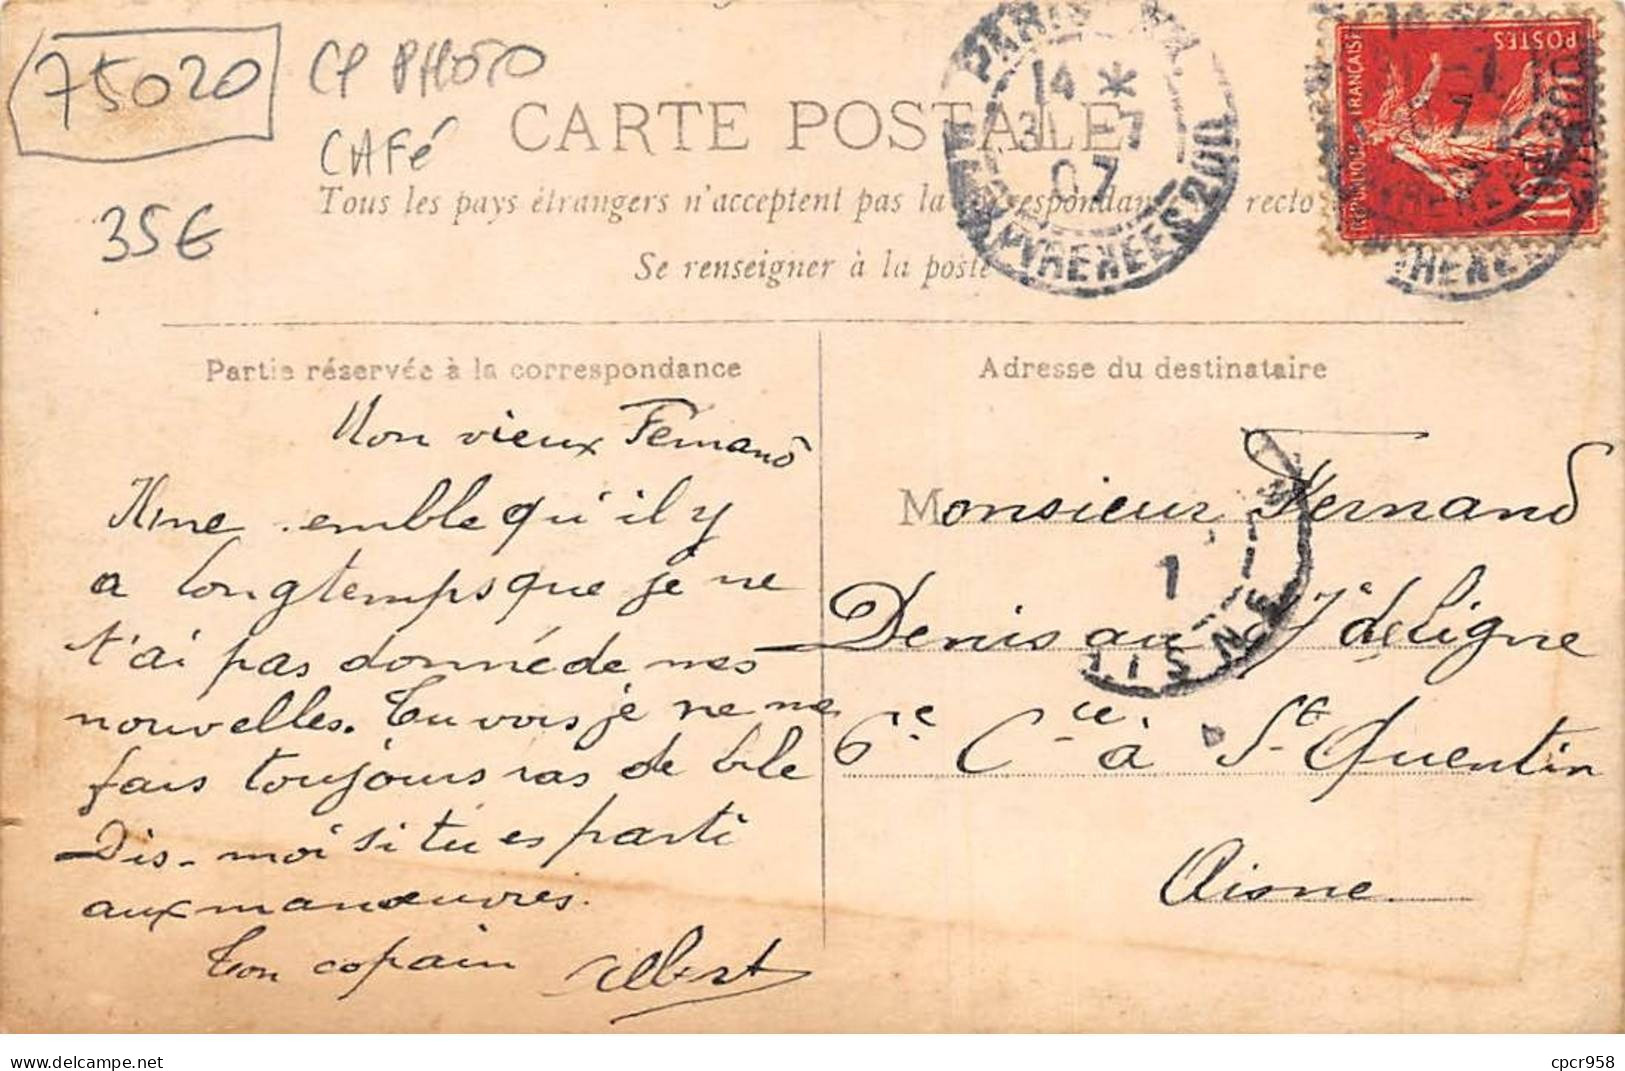 75020
CP PHOTO
CAFé
35€
CARTE POSTALE
Tous les pays étrangers n'acceptent pas la correspondance recto
Se renseigner à la poste
PARIS
14 *
31 - 7
07
PYRENEES 200
RÉPUBLIQUE FRANÇAISE
POSTES
10
Partie réservée à la correspondance
Mon vieux Fernand
Il me semble qu'il y
a longtemps que je ne
t'ai pas donné de mes
nouvelles. Tu vois je ne me
fais toujours pas de bile
Dis-moi si tu es parti
aux manœuvres.
Ton copain Albert
Adresse du destinataire
Monsieur Fernand
Denis au 7e de Ligne
6e Cie à St Quentin
Aisne
1
AISNE
cpcr958